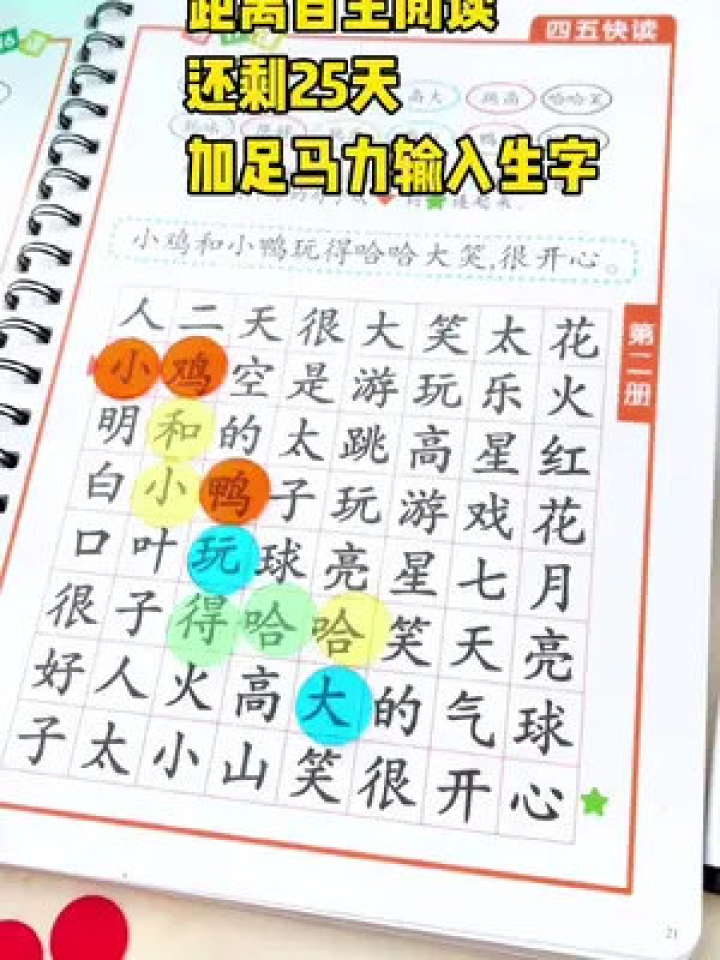 四五快读
距离自主阅读
还剩25天
高大 跳高 哈哈笑
加足马力输入生字
小鸡和小鸭玩得哈哈大笑,很开心。
第二册
人二天很大笑太花
小鸡空是游玩乐火
明和的太跳高星红
白小鸭子玩游戏花
口叶玩球亮星七月
很子得哈哈笑天亮
好人火高大的气球
子太小山笑很开心
21